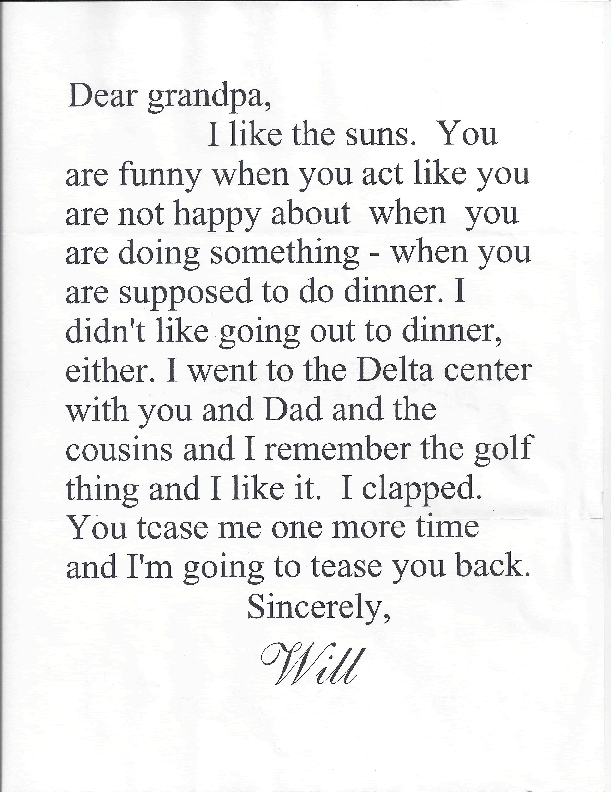 Dear grandpa,
I like the suns. You
are funny when you act like you
are not happy about when you
are doing something - when you
are supposed to do dinner. I
didn't like going out to dinner,
either. I went to the Delta center
with you and Dad and the
cousins and I remember the golf
thing and I like it. I clapped.
You tease me one more time
and I'm going to tease you back.
Sincerely,
Will